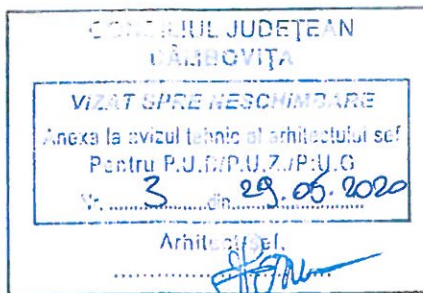 CONSILIUL JUDEŢEAN
DÂMBOVIŢA
VIZAT SPRE NESCHIMBARE
Anexa la avizul tehnic al arhitectului sef
Pentru P.U.D/P.U.Z./P.U.G
Nr. 3 din 29.05.2020
Arhitect şef,